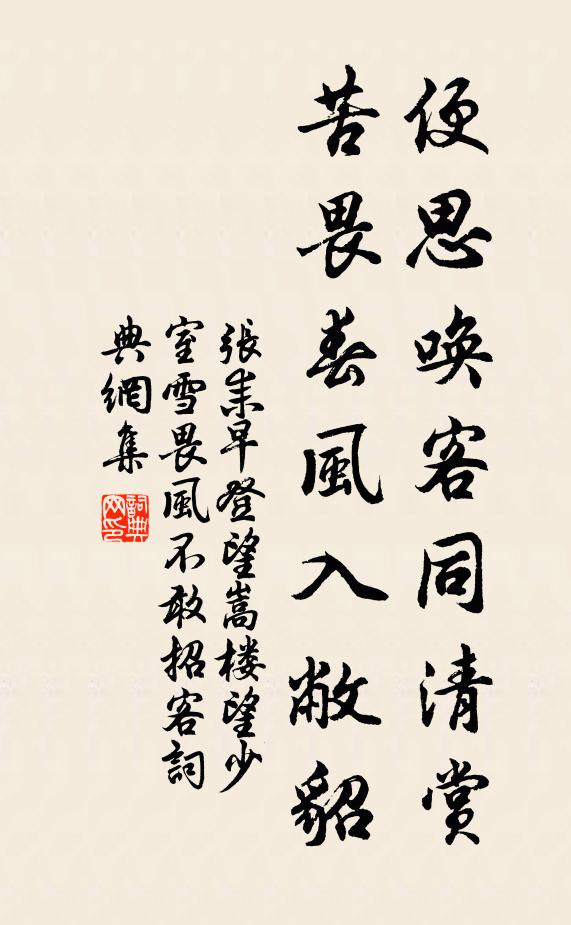 便思喚客同清賞
苦畏春風入敝貂
張耒早登望嵩楼望少
室雪畏風不敢招客詞
典網集
詞典
网印